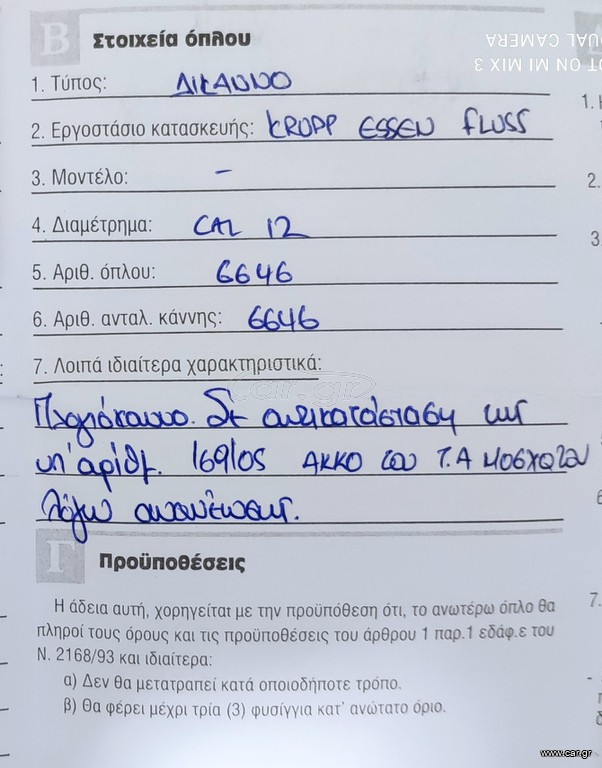 Β Στοιχεία όπλου
1. Τύπος: ΔΙΚΑΝΝΟ
2. Εργοστάσιο κατασκευής: KRUPP ESSEN FLUSS
3. Μοντέλο: -
4. Διαμέτρημα: CAL 12
5. Αριθ. όπλου: 6646
6. Αριθ. ανταλ. κάννης: 6646
7. Λοιπά ιδιαίτερα χαρακτηριστικά:
Πλαγιόκαννο. Σε αντικατάσταση της
υπ' αριθμ. 169/05 ΑΚΚΟ του Τ.Α ΜΟΣΧΑΤΟΥ
λόγω ανανέωσης.
Γ Προϋποθέσεις
Η άδεια αυτή, χορηγείται με την προϋπόθεση ότι, το ανωτέρω όπλο θα
πληροί τους όρους και τις προϋποθέσεις του άρθρου 1 παρ.1 εδάφ.ε του
Ν. 2168/93 και ιδιαίτερα:
α) Δεν θα μετατραπεί κατά οποιοδήποτε τρόπο.
β) Θα φέρει μέχρι τρία (3) φυσίγγια κατ' ανώτατο όριο.
OT ON MI MIX 3
UAL CAMERA
1.
2.
3
7.
car.gr
www.car.gr